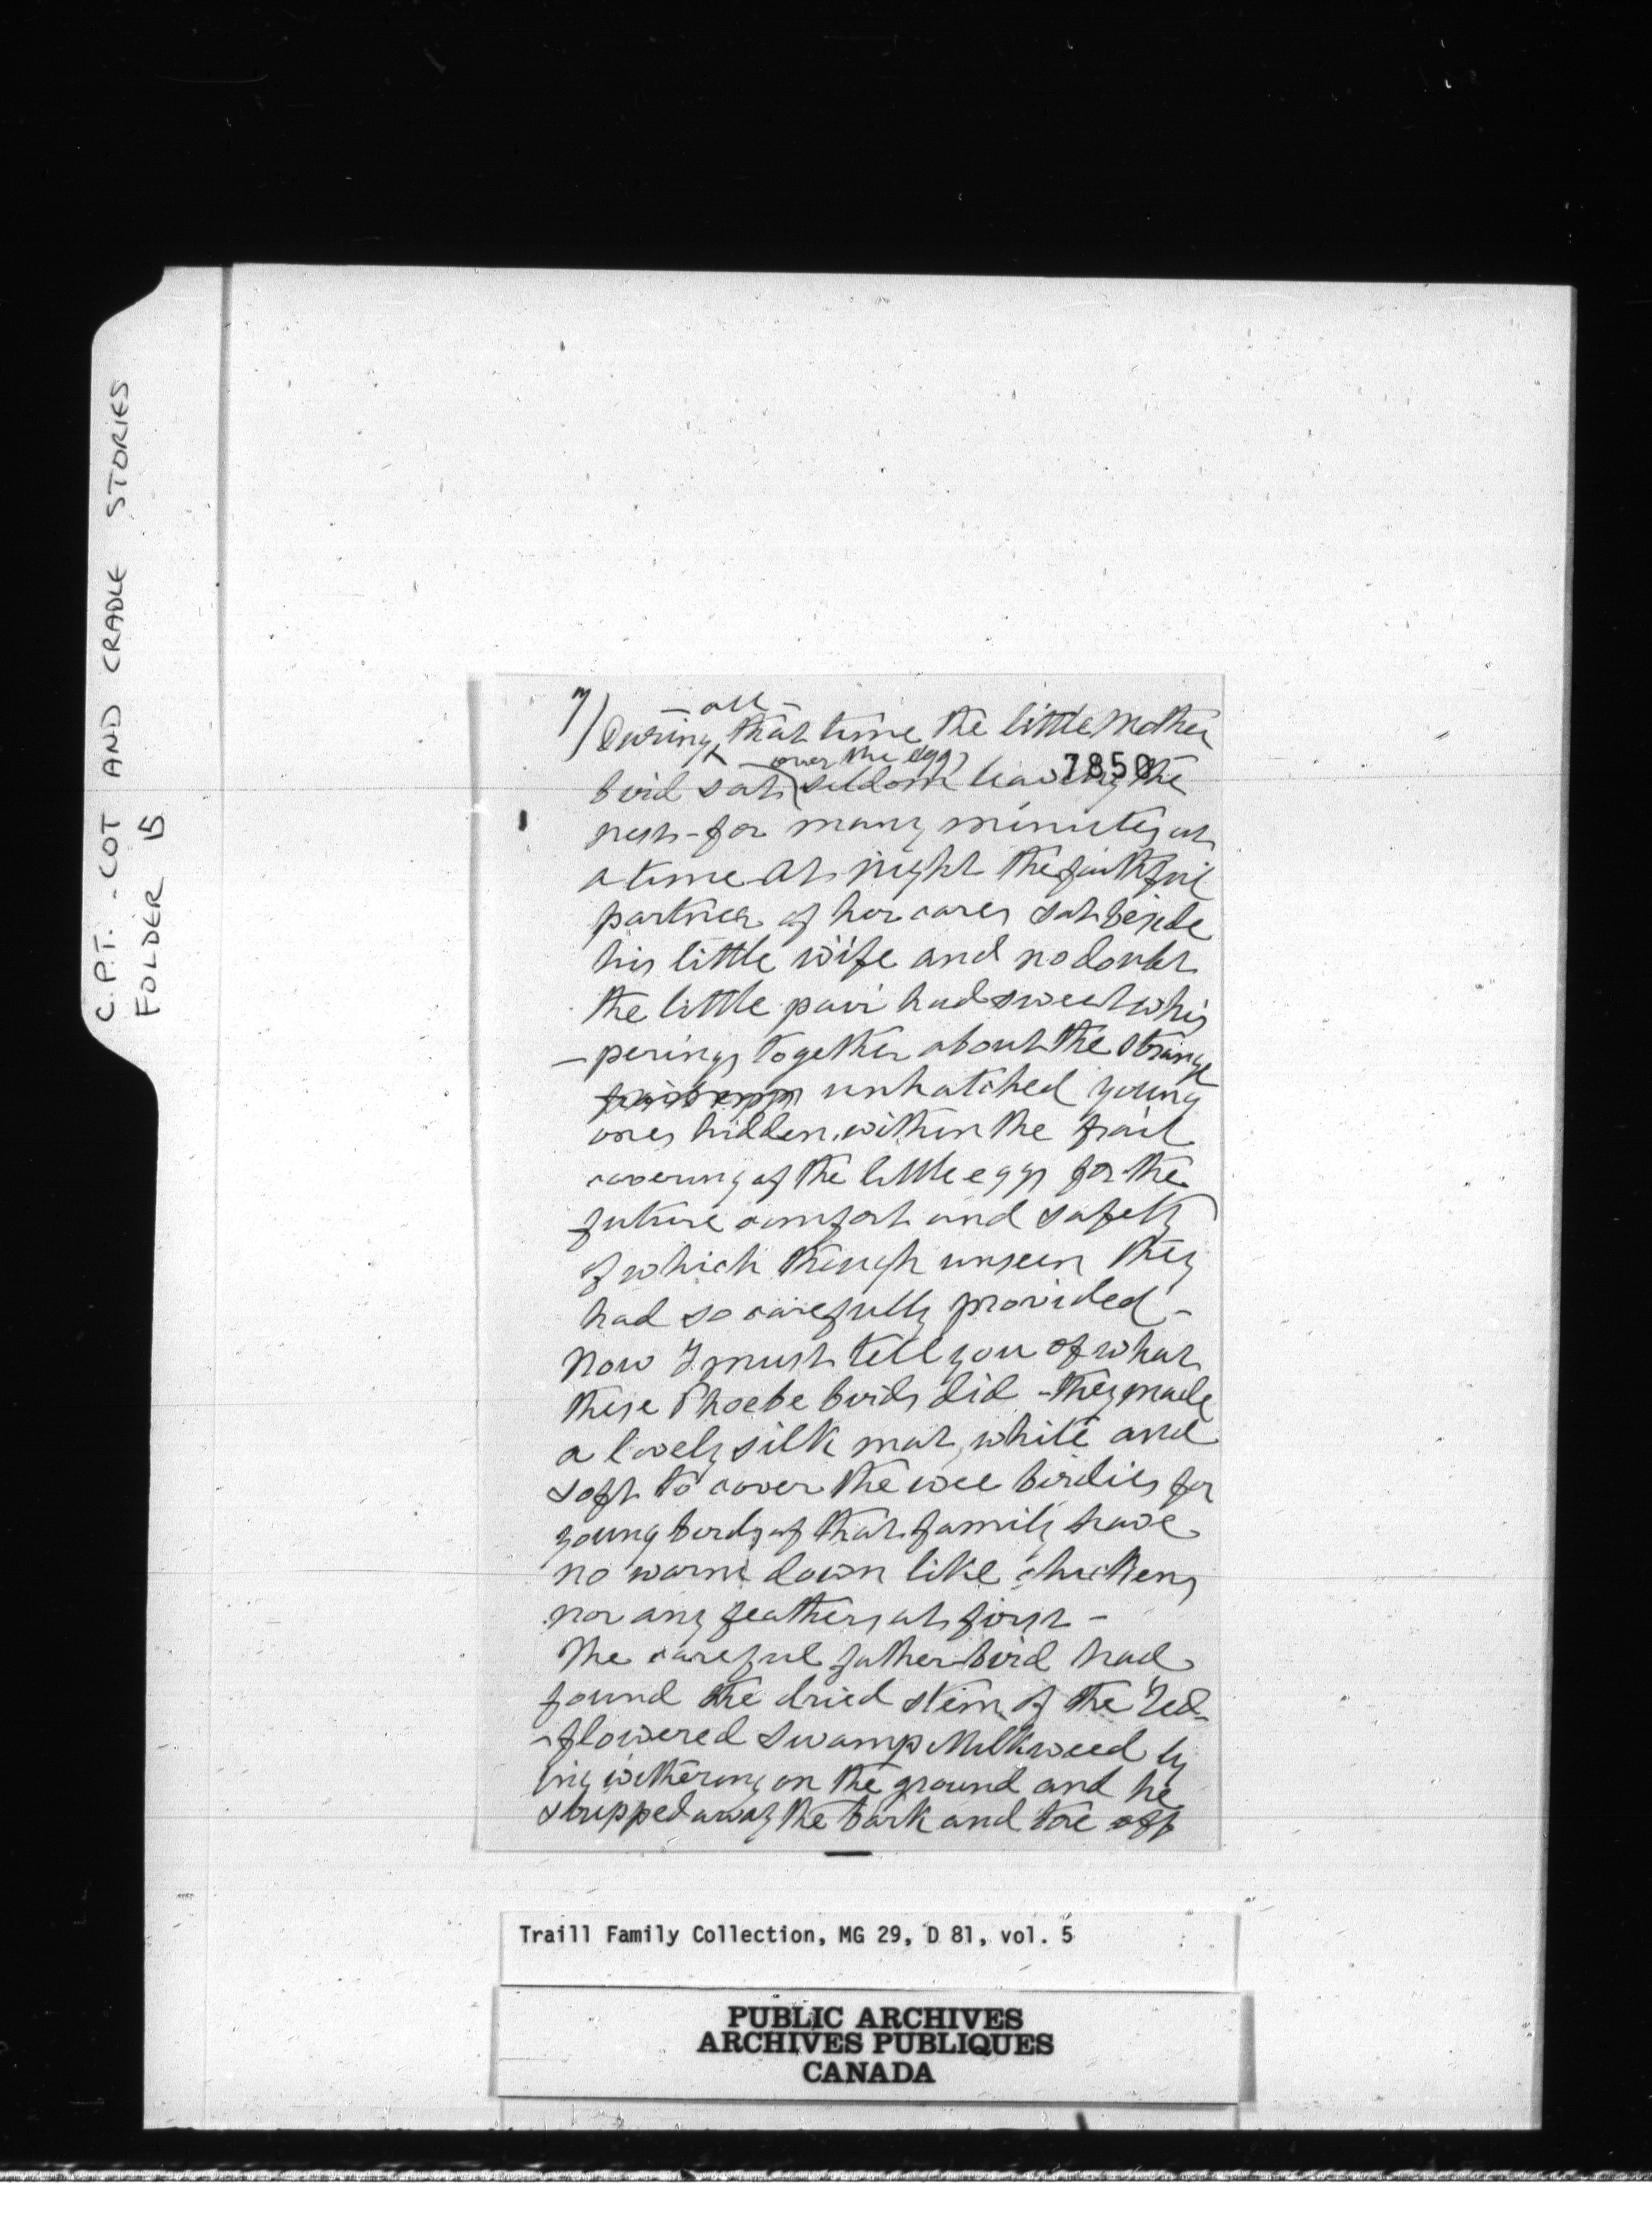 C.P.T. - COT AND CRADLE STORIES
FOLDER 15
7)
- all -
During that time the little Mother
over the eggs
7850
bird sat seldom leaving the
nest - for many minutes at
a time At night the faithful
partner of her cares sat beside
his little wife and no doubt
the little pair had sweet whis
- perings together about the strange
unhatched young
ones hidden within the frail
covering of the little eggs for the
future comfort and safety
of which though unseen they
had so carefully provided -
Now I must tell you of what
these Phoebe birds did - they made
a lovely silk mat, white and
soft to cover the wee birdies for
young birds of that family have
no warm down like chickens
nor any feathers at first -
The careful father bird had
found the dried stem of the Red-
- flowered Swamp Milkweed ly
ing withering on the ground and he
stripped away the bark and tore off
Traill Family Collection, MG 29, D 81, vol. 5
PUBLIC ARCHIVES
ARCHIVES PUBLIQUES
CANADA